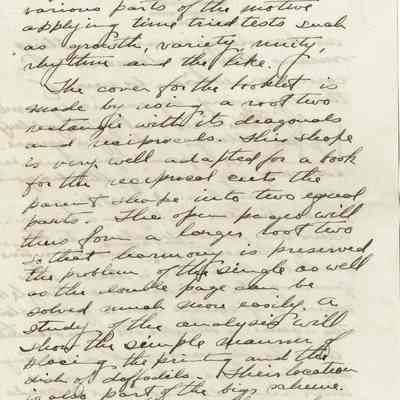 various parts of the motive
applying time tried tests such
as growth, variety, unity,
rhythm and the like.
The cover for the booklet is
made by using a root two
rectangle with its diagonals
and reciprocals. This shape
is very well adapted for a book
for the reciprocal cuts the
parent shape into two equal
parts. The open pages will
thus form a larger root two
so that harmony is preserved
the problem of the single as well
as the double page can be
solved much more easily. A
study of the analysis will
show the simple manner of
placing the printing and the
dish of daffodils. Their location
is also part of the big scheme.